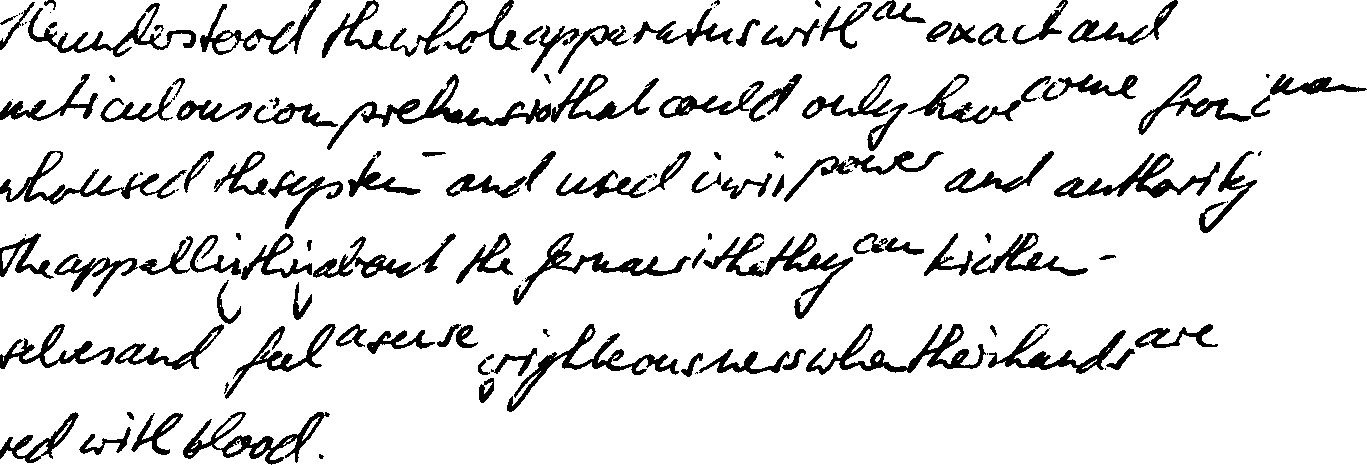 He understood the whole apparatus with an exact and
meticulous comprehension that could only have come from man
who used the system - and used it with power and authority
The appalling thing about the Germans is that they can kid them-
selves and feel a sense of righteousness when their hands are
red with blood.